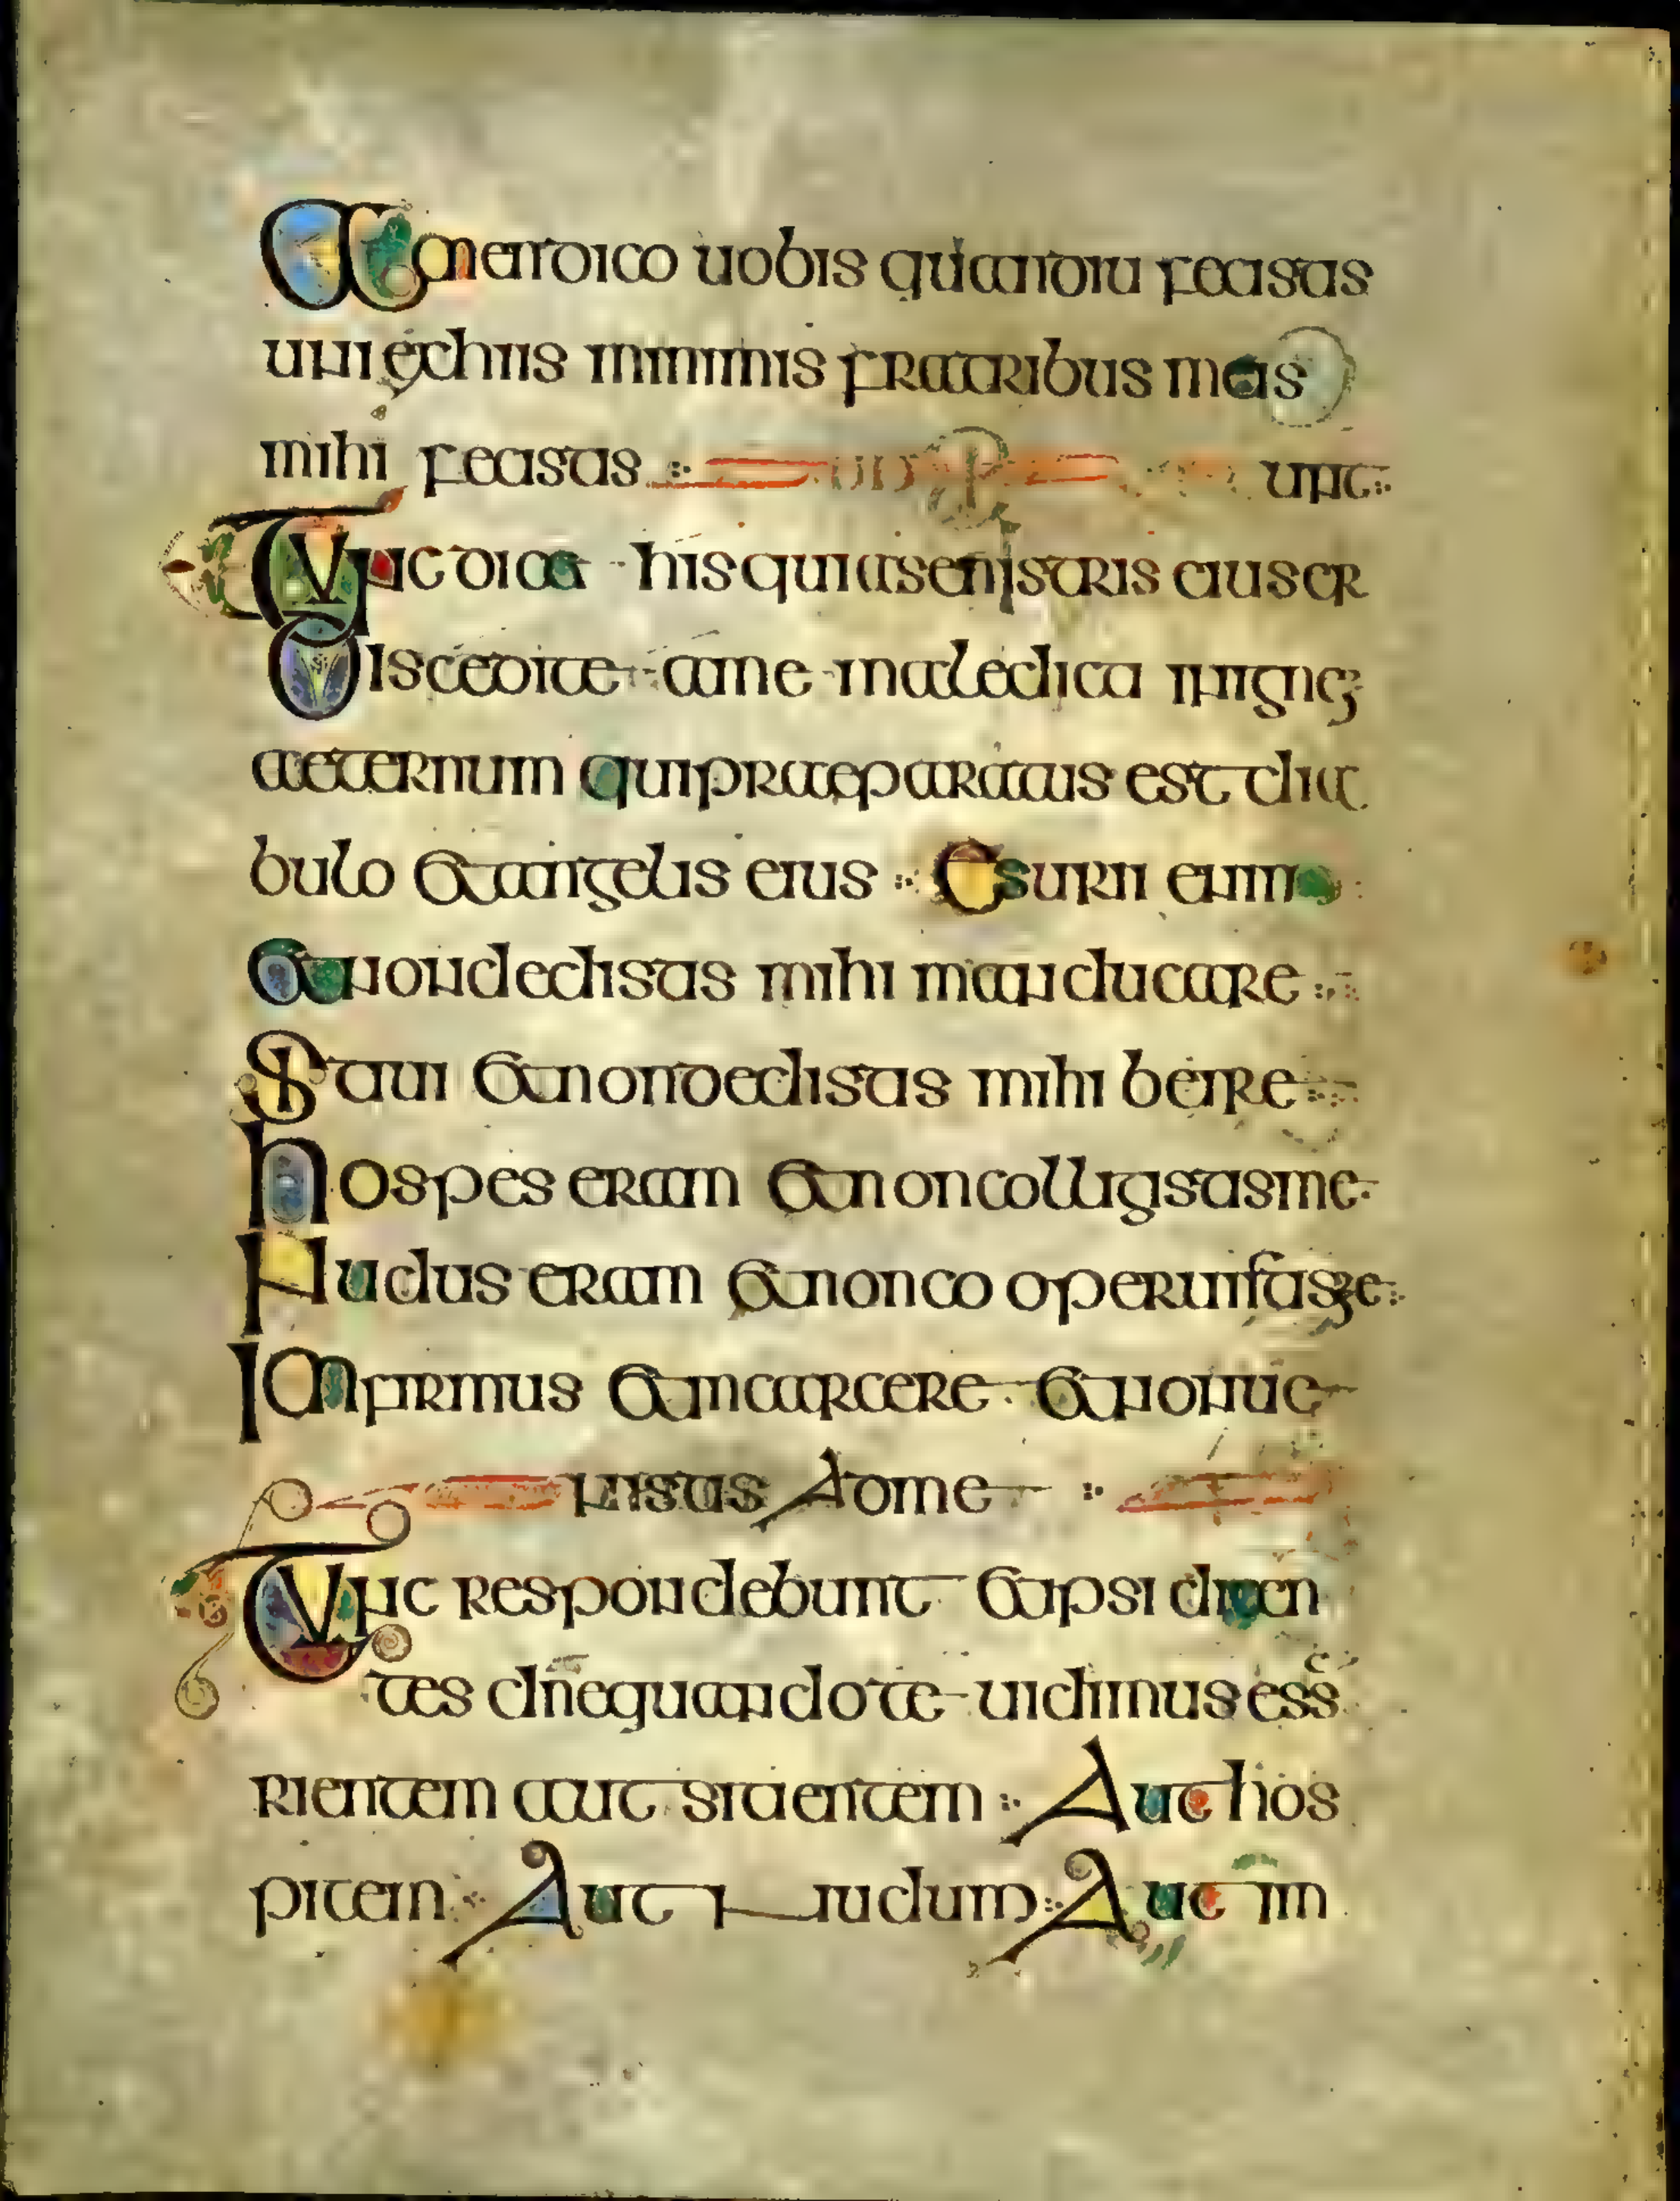 Amen dico uobis quamdiu fecistis
uni ex his minimis fratribus meis
mihi fecistis
Tunc dicet his qui a senistris eius er
unt
Discedite a me maledicti in igne
aeternum qui praeparatus est dia
bulo et angelis eius Esuriui enim
et non dedistis mihi manducare
Sitiui et non dedistis mihi bibere
hospes eram et non colligistis me
Nudus eram et non co operuistis me
Infirmus et in carcere et non ue
nistis Ad me
Tunc respondebunt et ipsi dicen
tes dne quando te uidimus essu
rientem aut sitientem Aut hos
pitem Aut nudum Aut in